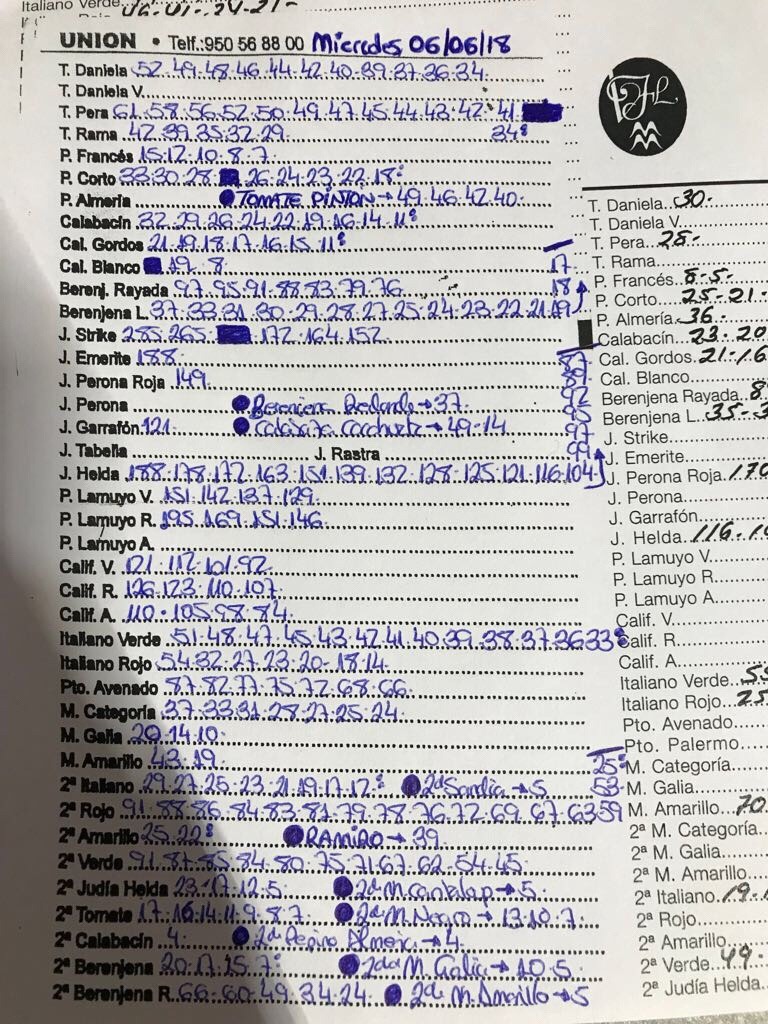 Italiano Verde
UNION • Telf.:950 56 88 00 Miercoles 06/06/18
T. Daniela 52.49.48.46.44.42.40.39.37.36.34.
T. Daniela V.
T. Pera 61.58.56.52.50.49.47.45.44.43.42.41
T. Rama 42.39.35.32.29. 34
P. Francés 15.12.10.8.7.
P. Corto 33.30.28. 26.24.23.22.18
P. Almería TOMATE PINTON → 49.46.42.40.
Calabacín 32.29.26.24.22.19.16.14.11
Cal. Gordos 21.19.18.17.16.15.11
Cal. Blanco 19.8 17
Berenj. Rayada 97.95.91.88.83.79.76. 18
Berenjena L. 37.33.31.30.29.28.27.25.24.23.22.21 19
J. Strike 285.265. 172.164.152
J. Emerite 188. 87
J. Perona Roja 149. 89
92
J. Perona Berenjena Redonda → 37. 95
J. Garrafón 121 → 49-14 97
J. Tabella J. Rastra 99
J. Helda 188.178.172.163.151.139.132.128.125.121.116.104
P. Lamuyo V. 151.142.137.129.
P. Lamuyo R. 195.169.151.146.
P. Lamuyo A.
Calif. V. 121.112.101.92.
Calif. R. 126.123.110.107.
Calif. A. 110.105.98.84.
Italiano Verde 51.48.47.45.43.42.41.40.39.38.37.36 33
Italiano Rojo 54.32.27.23.20.18.14.
Pto. Avenado 87.82.77.75.72.68.66.
M. Categoría 37.33.31.28.27.25.24.
M. Galia 20.14.10.
M. Amarillo 43.19. 25
2ª Italiano 29.27.25.23.21.19.17.12. 2da Sandia → 5 53
2ª Rojo 91.88.86.84.83.81.79.78.76.72.69.67.63 59
2ª Amarillo 25.22 RAMIRO → 39.
2ª Verde 91.87.85.84.80.75.71.67.62.54.45.
2ª Judía Helda 23.17.12.5. 2da M. Cantalap → 5
2ª Tomate 17.16.14.11.9.8.7. 2da M. Negro → 13.10.7
2ª Calabacín 4. 2da Pepino Almeria → 4.
2ª Berenjena 20.17.15.7 2da M. Galia → 10.5.
2ª Berenjena R. 66.60.49.34.24. 2da M. Amarillo → 5
T. Daniela 30.
T. Daniela V.
T. Pera 25-
T. Rama
P. Francés 8-5-
P. Corto 25-21-
P. Almería 36-
Calabacín 23-20
Cal. Gordos 21-16
Cal. Blanco
Berenjena Rayada
Berenjena L. 35-3
J. Strike
J. Emerite
J. Perona Roja 170
J. Perona
J. Garrafón
J. Helda 116-1
P. Lamuyo V.
P. Lamuyo R.
P. Lamuyo A.
Calif. V.
Calif. R
Calif. A.
Italiano Verde
Italiano Rojo 25
Pto. Avenado
Pto. Palermo
M. Categoría
M. Galia
M. Amarillo 70
2ª M. Categoría
2ª M. Galia
2ª M. Amarillo
2ª Italiano 19-
2ª Rojo
2ª Amarillo
2ª Verde 49-
2ª Judía Helda